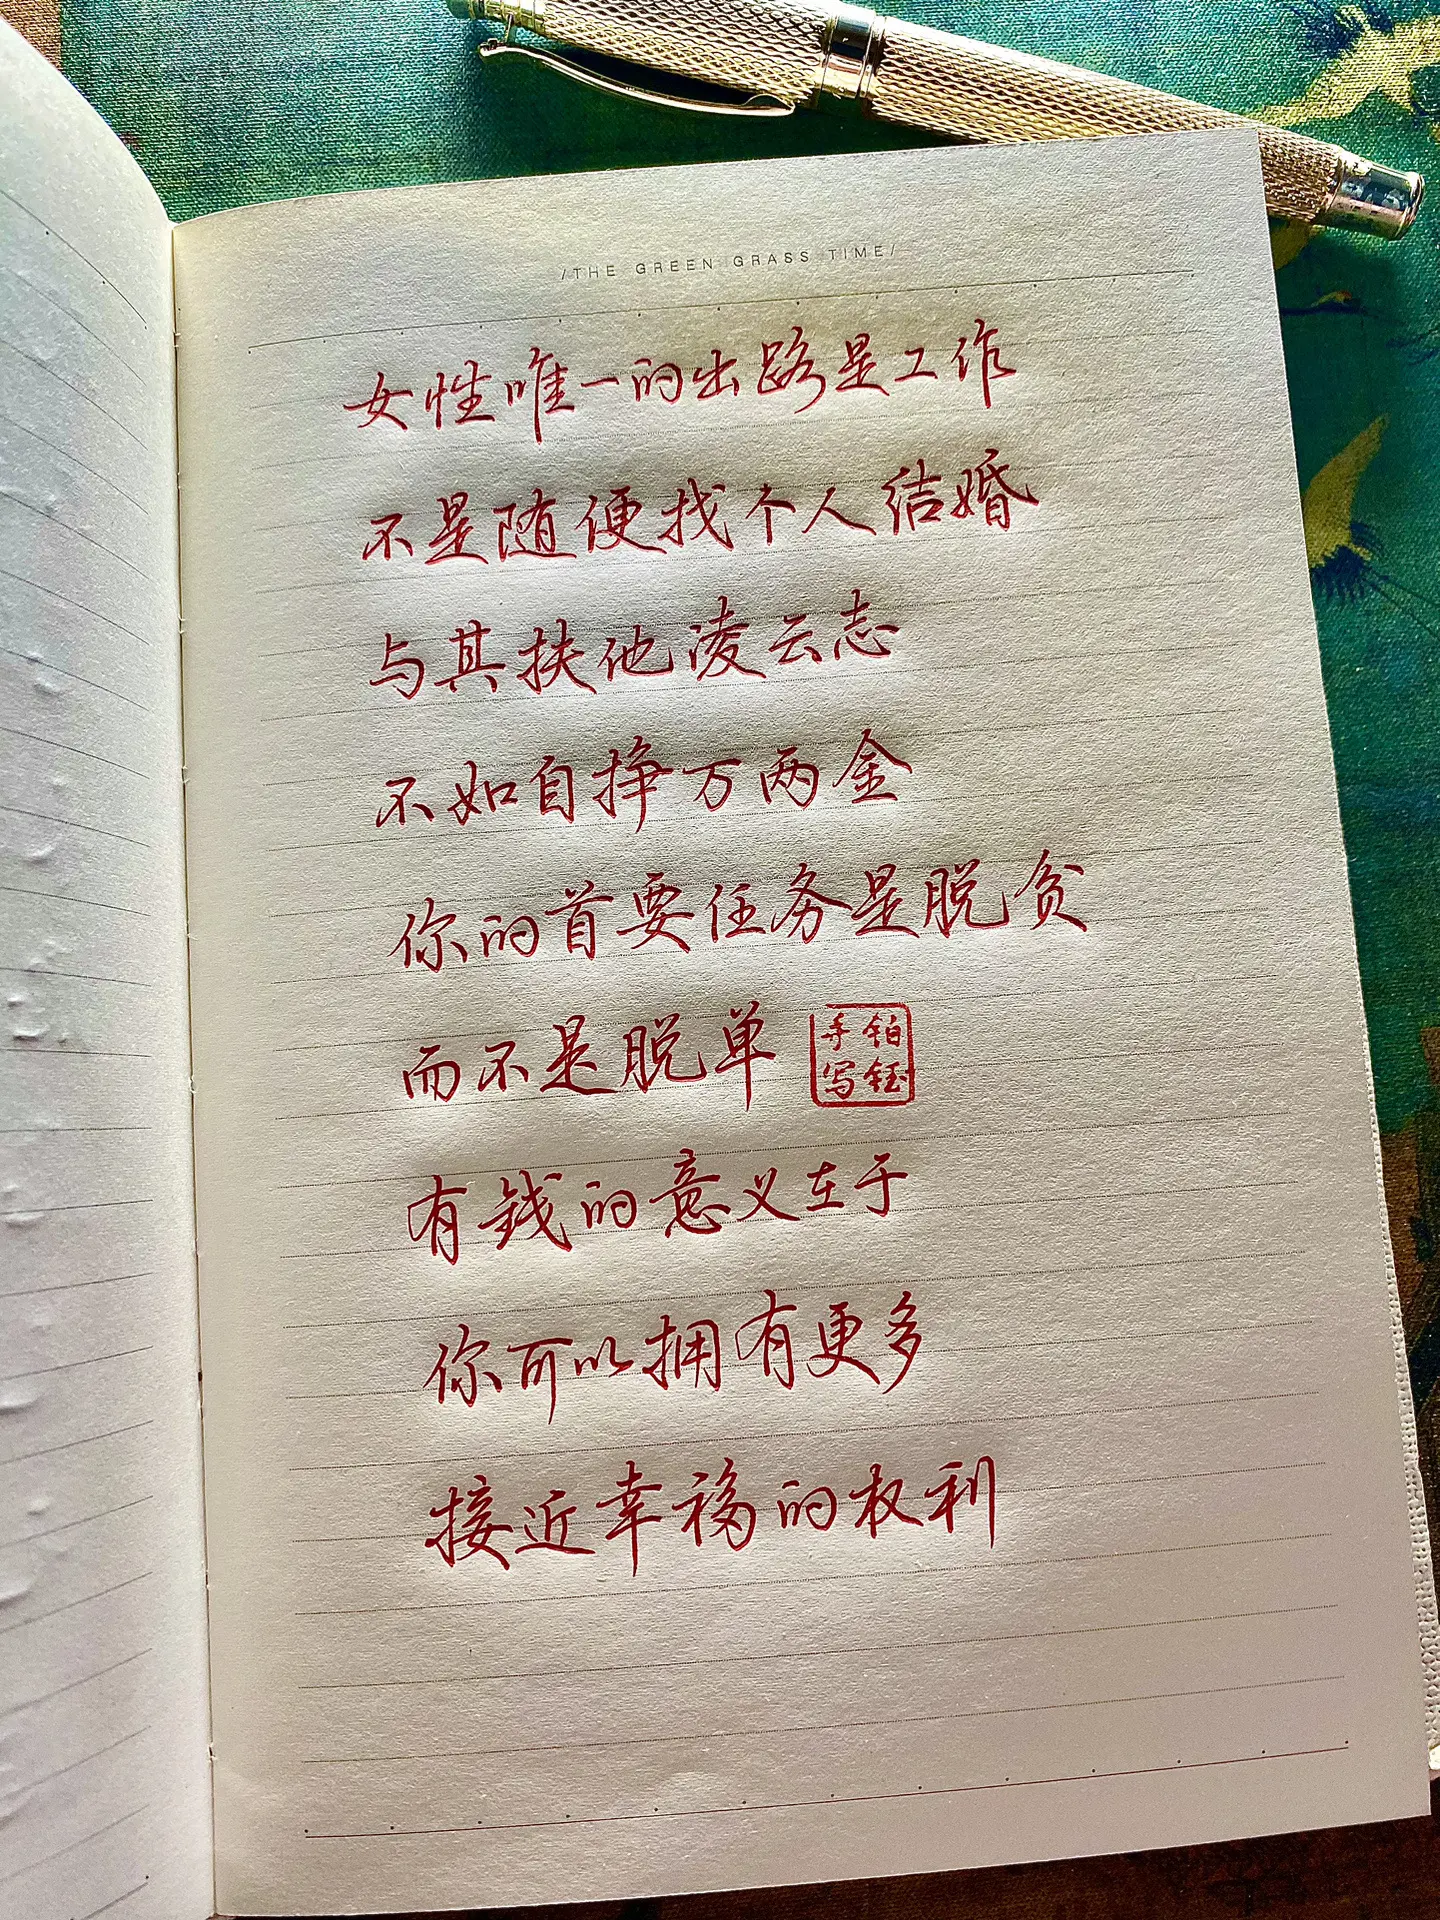 /THE GREEN GRASS TIME/
女性唯一的出路是工作
不是随便找个人结婚
与其扶他凌云志
不如自挣万两金
你的首要任务是脱贫
而不是脱单
铂钰
手写
有钱的意义在于
你可以拥有更多
接近幸福的权利